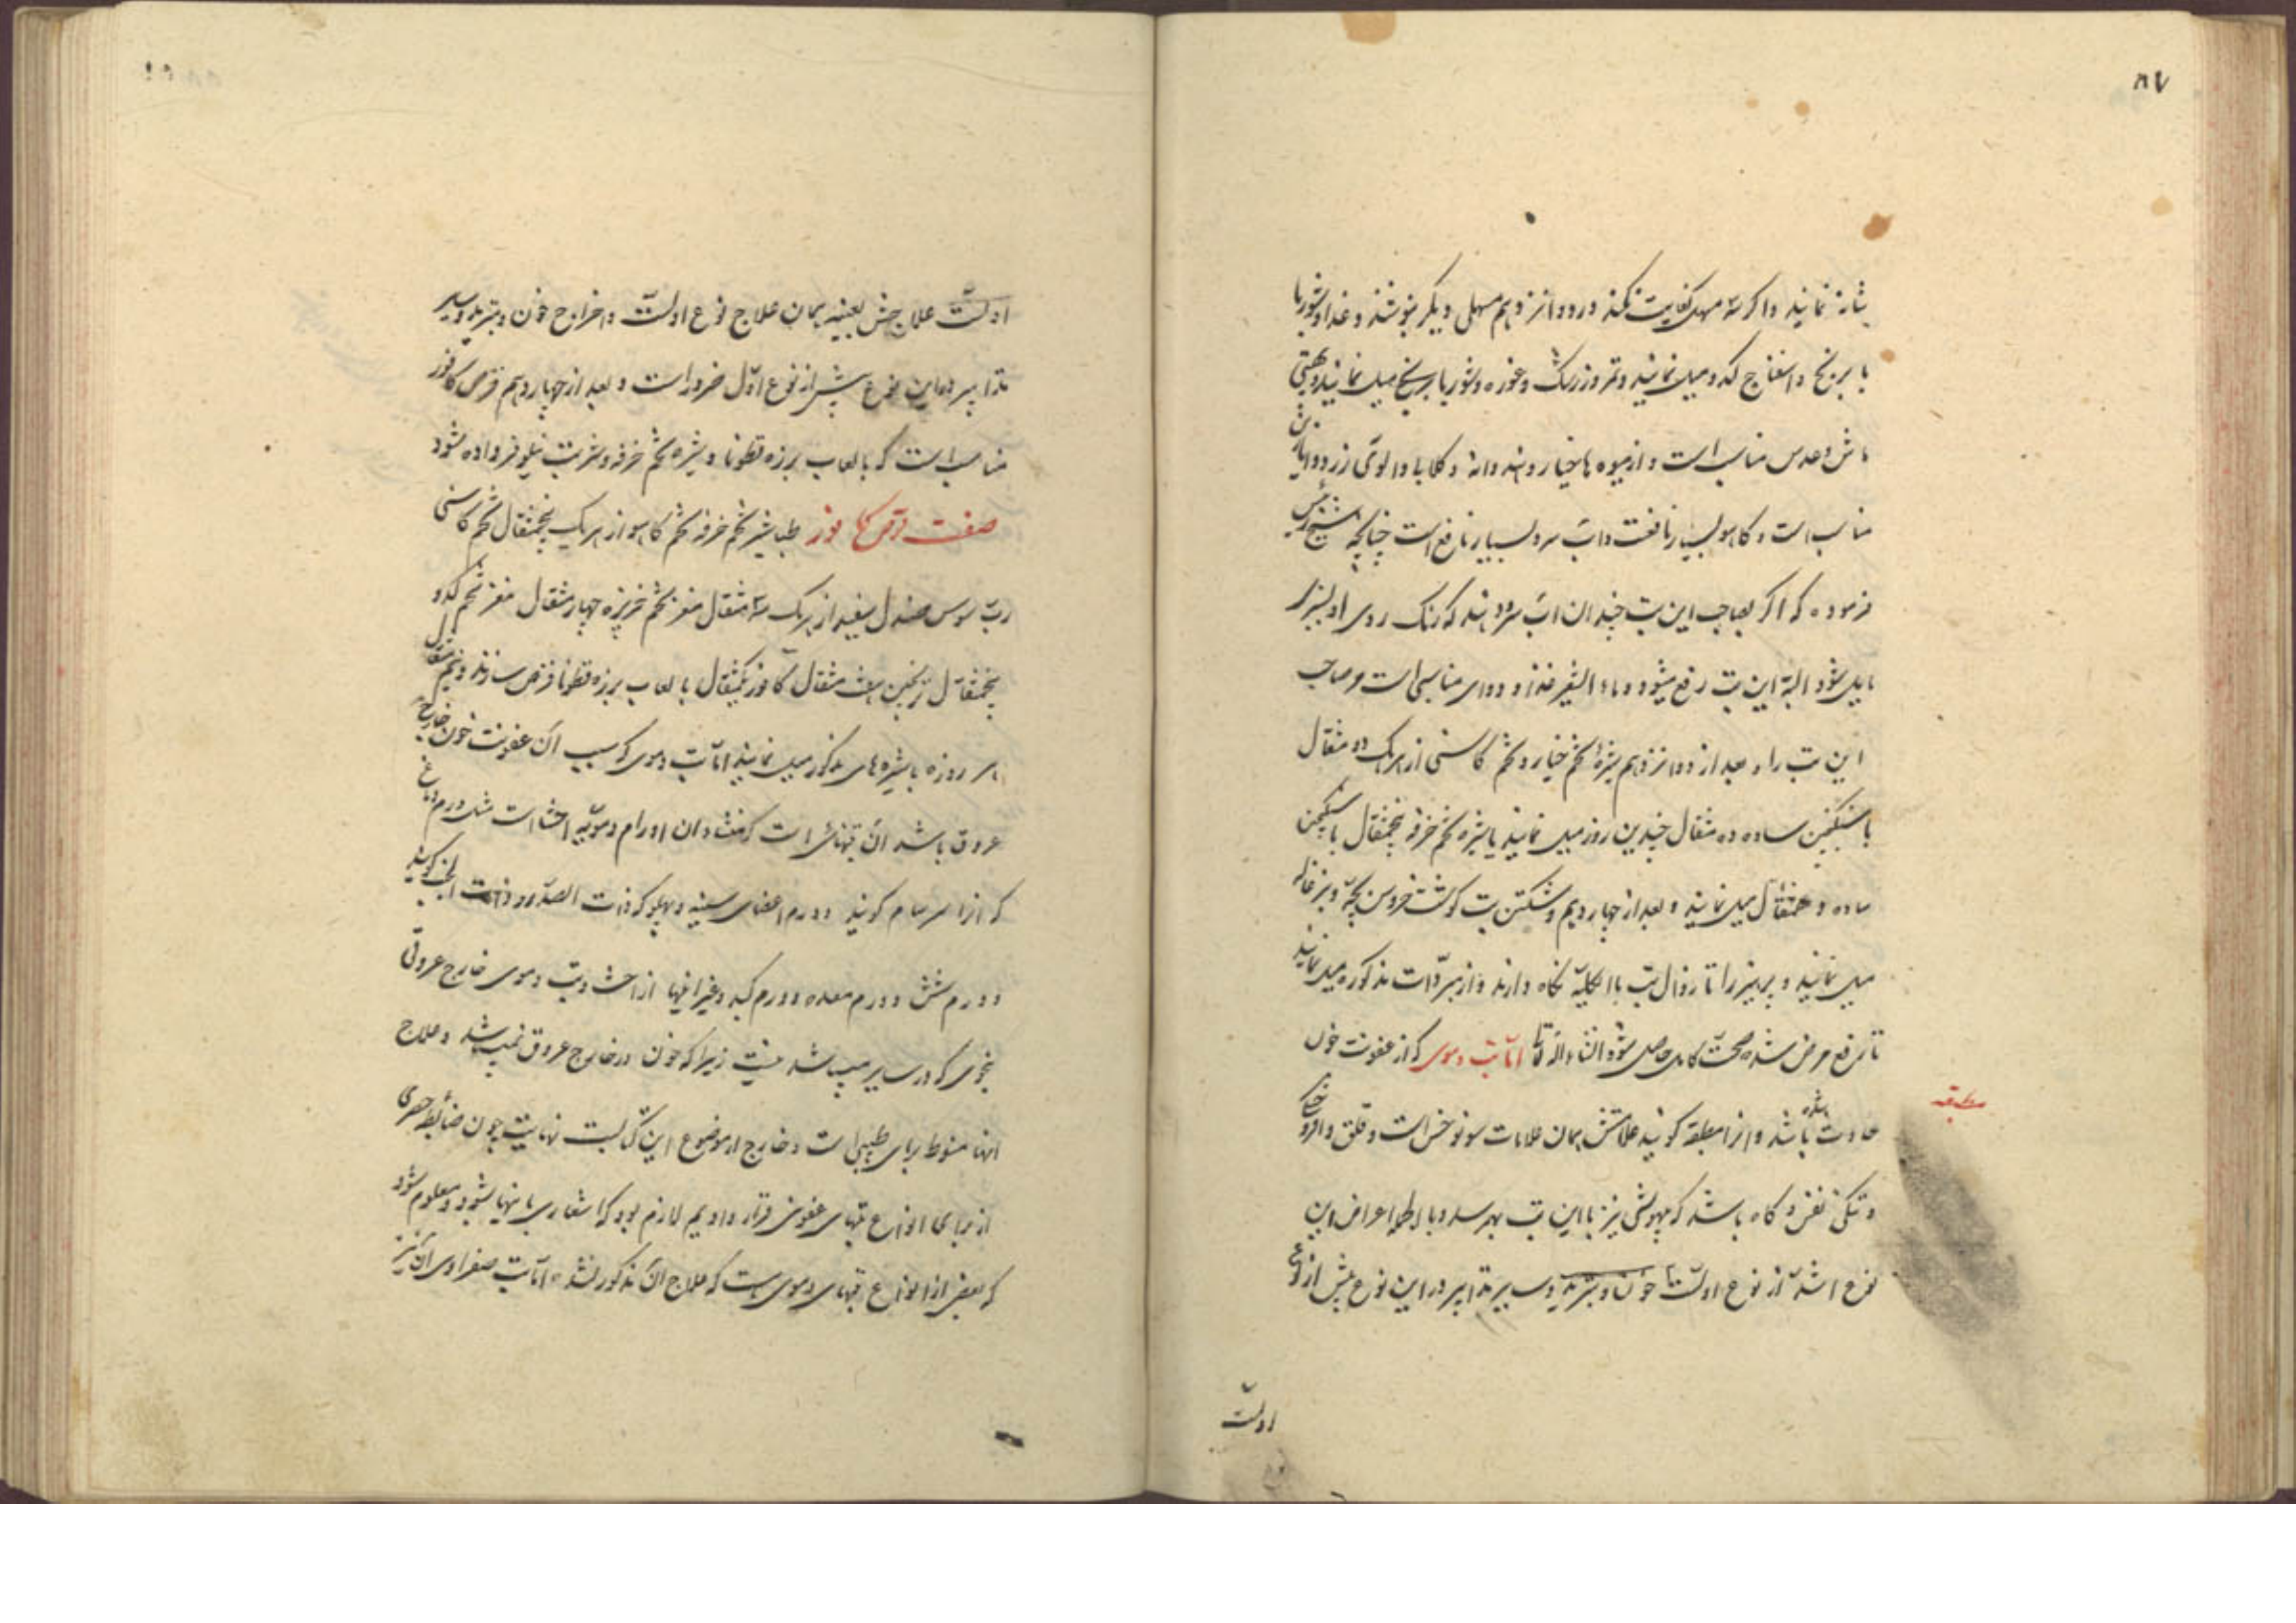 ۸۷
نمایند و اگر سه مسهل کفایت نکند در دوانزدهم مسهل دیگر بنوشند و غذا شوربا
با برنج و اسفناج کدو میل نمایند و تمر و زرشک و غوره و شوربا برنج میل نمایند
ماش و عدس مناسب است و از میوه ها خیار و هندوانه و گلابی و الوی زرد
مناسب است و کاهو بسیار نافعست و اب سرد بسیار نافع است چنانچه شیخ رئیس
فرموده که اگر بصاحب این تب چندان اب سرد دهند که رنگ روی او بسبزی
مایل شود البته این تب رفع میشود و ماء الشعیر غذا و دوای مناسبی است و صاحب
این تب را بعد از دوانزدهم شیره تخم خیار و تخم کاسنی از هریک ده مثقال
با سکنجبین ساده ده مثقال چندین روز میل نمایند یا شیره تخم خرفه پنجمثقال با سکنجبین
ساده ده مثقال میل نمایند و بعد از چهاردهم و شکستن تب گوشت خروس بچه و بزغاله
میل نمایند و پرهیز را تا زوال تب بالکلیه نگاه دارند و از مبردات مذکوره میل نمایند
تا رفع مرض شده صحت کامل حاصل شود انشاء الله تعالی اما تب دموی که از عفونت خون
مطبقه
حادث شده باشد و انرا مطبقه گویند علامتش همان علامات سونوخس است و قلق
و تنگی نفس و گاه باشد که بیهوشی نیز با این تب بهم رسد و بالجمله اعراض این
نوع اشد از نوع اولست خون و تبرید و سایر تدابیر در این نوع بیش از نوع
اولست
اولست علاجش بعینه همان علاج نوع اولست و اخراج خون و تبرید و سایر
تدابیر در این نوع بیش از نوع اول ضرور است و بعد از چهاردهم قرص کافور
مناسب است که با لعاب بزرقطونا و شیره تخم خرفه و شربت نیلوفر داده شود
صفت قرص کافور طباشیر تخم خرفه تخم کاهو از هریک پنجمثقال تخم کاسنی
رب سوس صندل سفید از هریک سه مثقال مغز تخم خربزه چهار مثقال مغز تخم کدو
پنجمثقال ترنجبین هفت مثقال کافور یکمثقال با لعاب بزرقطونا قرص سازند و نیم مثقال
هر روزه با شیره های مذکور میل نمایند اما تب دموی که سبب ان عفونت خون خارج
عروق باشد ان تبهائی است که منشاء ان اورام دمویه احشا است مثل ورم دماغ
که انرا سرسام گویند و ورم اعضای سینه و پهلو که ذات الصدر و ذات الجنب گویند
و ورم شش و ورم معده و ورم کبد و غیر اینها از احشا و تب دموی خارج عروقی
بنحوی که در سایر میباشد نیست زیرا که خون در خارج عروق نمیباشد و علاج
اینها منوط برای طبیب است و خارج از موضوع این کتابست نهایت چون ضابطه حصری
از برای انواع تبهای عفونی قرار دادیم لازم بود که اشعاری باینها بشود و معلوم شود
که بعضی از انواع تبهای دموی هست که علاج ان مذکور نشده اما تب صفراوی ان نیز